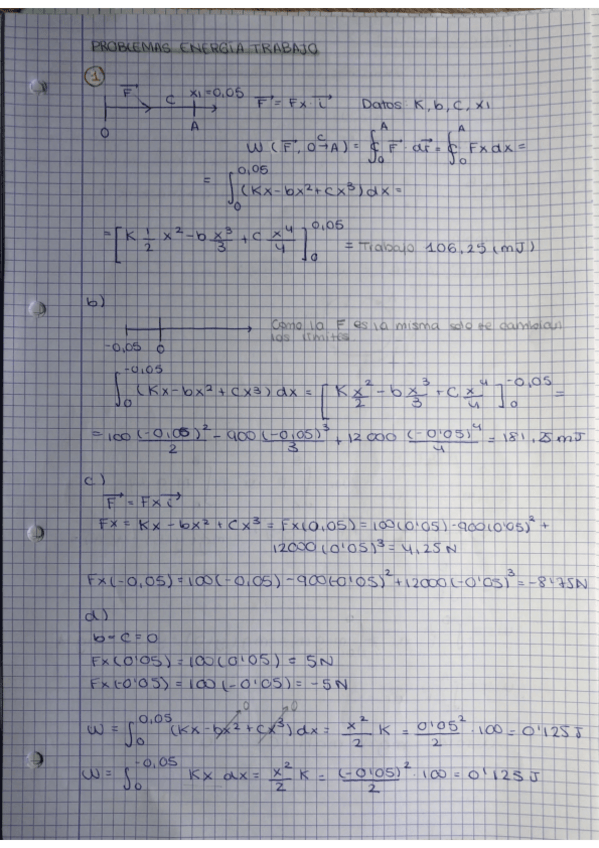 PROBLEMAS ENERGÍA TRABAJO
1
F C x1=0,05 F = Fx · i Datos K, b, C, x1
O A
W (F, O C→ A) = ∮ₒᴬ F · dr = ∮ₒᴬ Fx dx =
= ∫₀^0,05 (Kx - bx² + Cx³) dx =
= [K 1/2 x² - b x³/3 + C x⁴/4]₀^0,05 = Trabajo 106,25 (mJ)
b)
Como la F es la misma solo se cambian
los límites
-0,05 0
∫₀^-0,05 (Kx - bx² + Cx³) dx = [K x²/2 - b x³/3 + C x⁴/4]₀^-0,05 =
= 100 (-0,05)²/2 - 900 (-0,05)³/3 + 12000 (-0'05)⁴/4 = 181,25 mJ
c)
F = Fx i
Fx = Kx - bx² + Cx³ = Fx(0,05) = 100(0'05) - 900(0'05)² +
12000(0'05)³ = 4,25 N
Fx(-0,05) = 100(-0,05) - 900(-0'05)² + 12000(-0'05)³ = -8'75 N
d)
b = C = 0
Fx(0'05) = 100(0'05) = 5N
Fx(-0'05) = 100(-0'05) = -5N
0 0
W = ∫₀^0,05 (Kx - bx² + Cx³) dx = x²/2 K = 0'05²/2 · 100 = 0'125 J
W = ∫₀^-0,05 Kx dx = x²/2 K = (-0'05)²/2 · 100 = 0'125 J